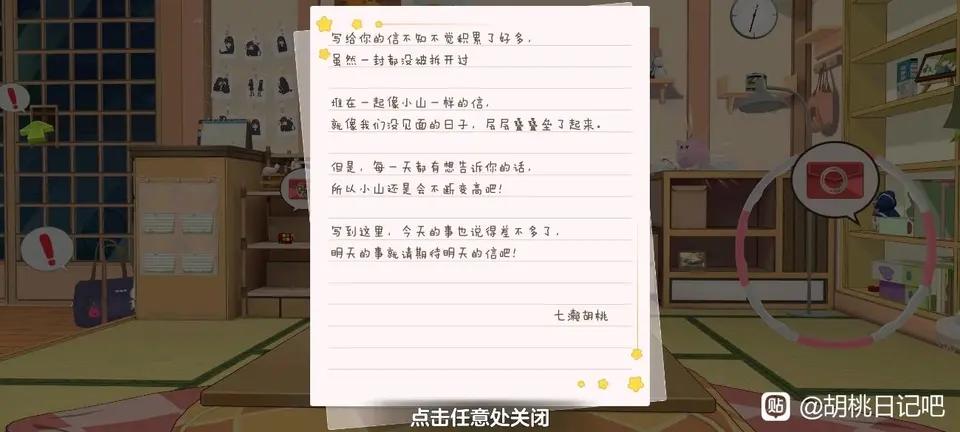 写给你的信不知不觉积累了好多，
虽然一封都没被拆开过
堆在一起像小山一样的信，
就像我们没见面的日子，层层叠叠垒了起来。
但是，每一天都有想告诉你的话，
所以小山还是会不断变高吧！
写到这里，今天的事也说得差不多了，
明天的事就请期待明天的信吧！
七濑胡桃
点击任意处关闭
贴 @胡桃日记吧